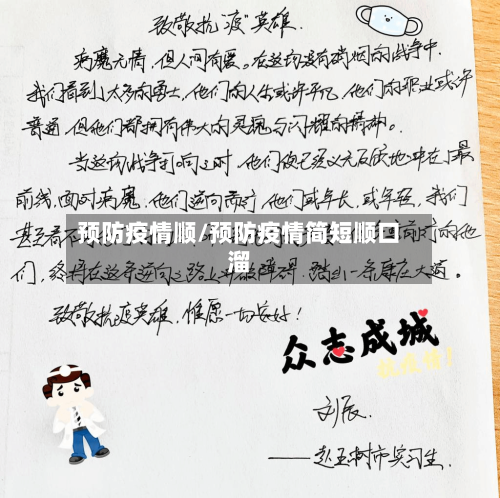 致敬抗"疫"英雄.
病魔无情,但人间有爱。在这场没有硝烟的战争中.
我们看到太多的勇士,他们的人生或许平凡,他们的职业或许
普通,但他们都拥有伟大的灵魂与闪耀的精神。
当这场战争打响之时,他们便已经义无反顾地冲在了最
前线,面对病魔,他们逆向而行,他们或年长,或年轻,我们
甚至看不
预防疫情顺/预防疫情简短顺口
溜
前行的他
们,终将在这条逆向之路上冲破障碍,踏出一条康庄大道。
致敬抗疫英雄,惟愿一切安好!
众志成城
抗疫情!
刘辰.
——赴玉树市实习生.